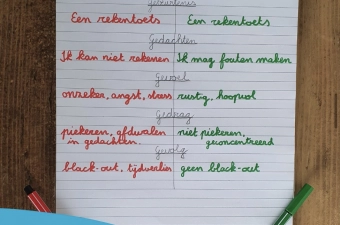 Gebeurtenis
Een rekentoets Een rekentoets
Gedachten
Ik kan niet rekenen Ik mag fouten maken
Gevoel
onzeker, angst, stress rustig, hoopvol
Gedrag
piekeren, afdwalen niet piekeren,
in gedachten. geconcentreerd
Gevolg
black-out, tijdverlies geen black-out